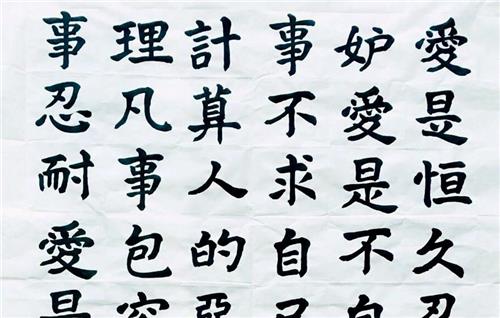 愛昰恒久忍
妒愛是不自
事不求自己
計算人的惡
理凡事包容
事忍耐愛是